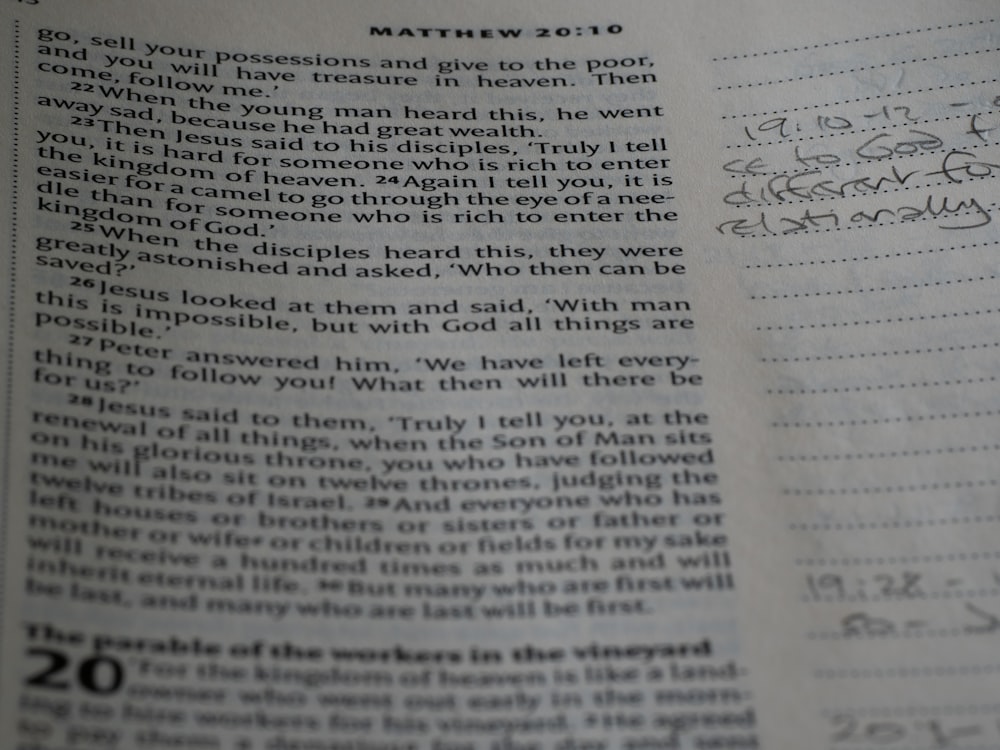 MATTHEW 20:10
go, sell your possessions and give to the poor,
and you will have treasure in heaven. Then
come, follow me.’
22 When the young man heard this, he went
away sad, because he had great wealth.
23 Then Jesus said to his disciples, ‘Truly I tell
you, it is hard for someone who is rich to enter
the kingdom of heaven. 24 Again I tell you, it is
easier for a camel to go through the eye of a nee-
dle than for someone who is rich to enter the
kingdom of God.’
25 When the disciples heard this, they were
greatly astonished and asked, ‘Who then can be
saved?’
26 Jesus looked at them and said, ‘With man
this is impossible, but with God all things are
possible.’
27 Peter answered him, ‘We have left every-
thing to follow you! What then will there be
for us?’
28 Jesus said to them, ‘Truly I tell you, at the
renewal of all things, when the Son of Man sits
on his glorious throne, you who have followed
me will also sit on twelve thrones, judging the
twelve tribes of Israel. 29 And everyone who has
left houses or brothers or sisters or father or
mother or wife or children or fields for my sake
will receive a hundred times as much and will
inherit eternal life. 30 But many who are first will
be last, and many who are last will be first.
The parable of the workers in the vineyard
20 ‘For the kingdom of heaven is like a land-
owner who went out early in the morn-
ing to hire workers for his vineyard. 2 He agreed
to pay them a denarius for the day and sent
19:10-12 -
to God
different
relationally
19:28 -